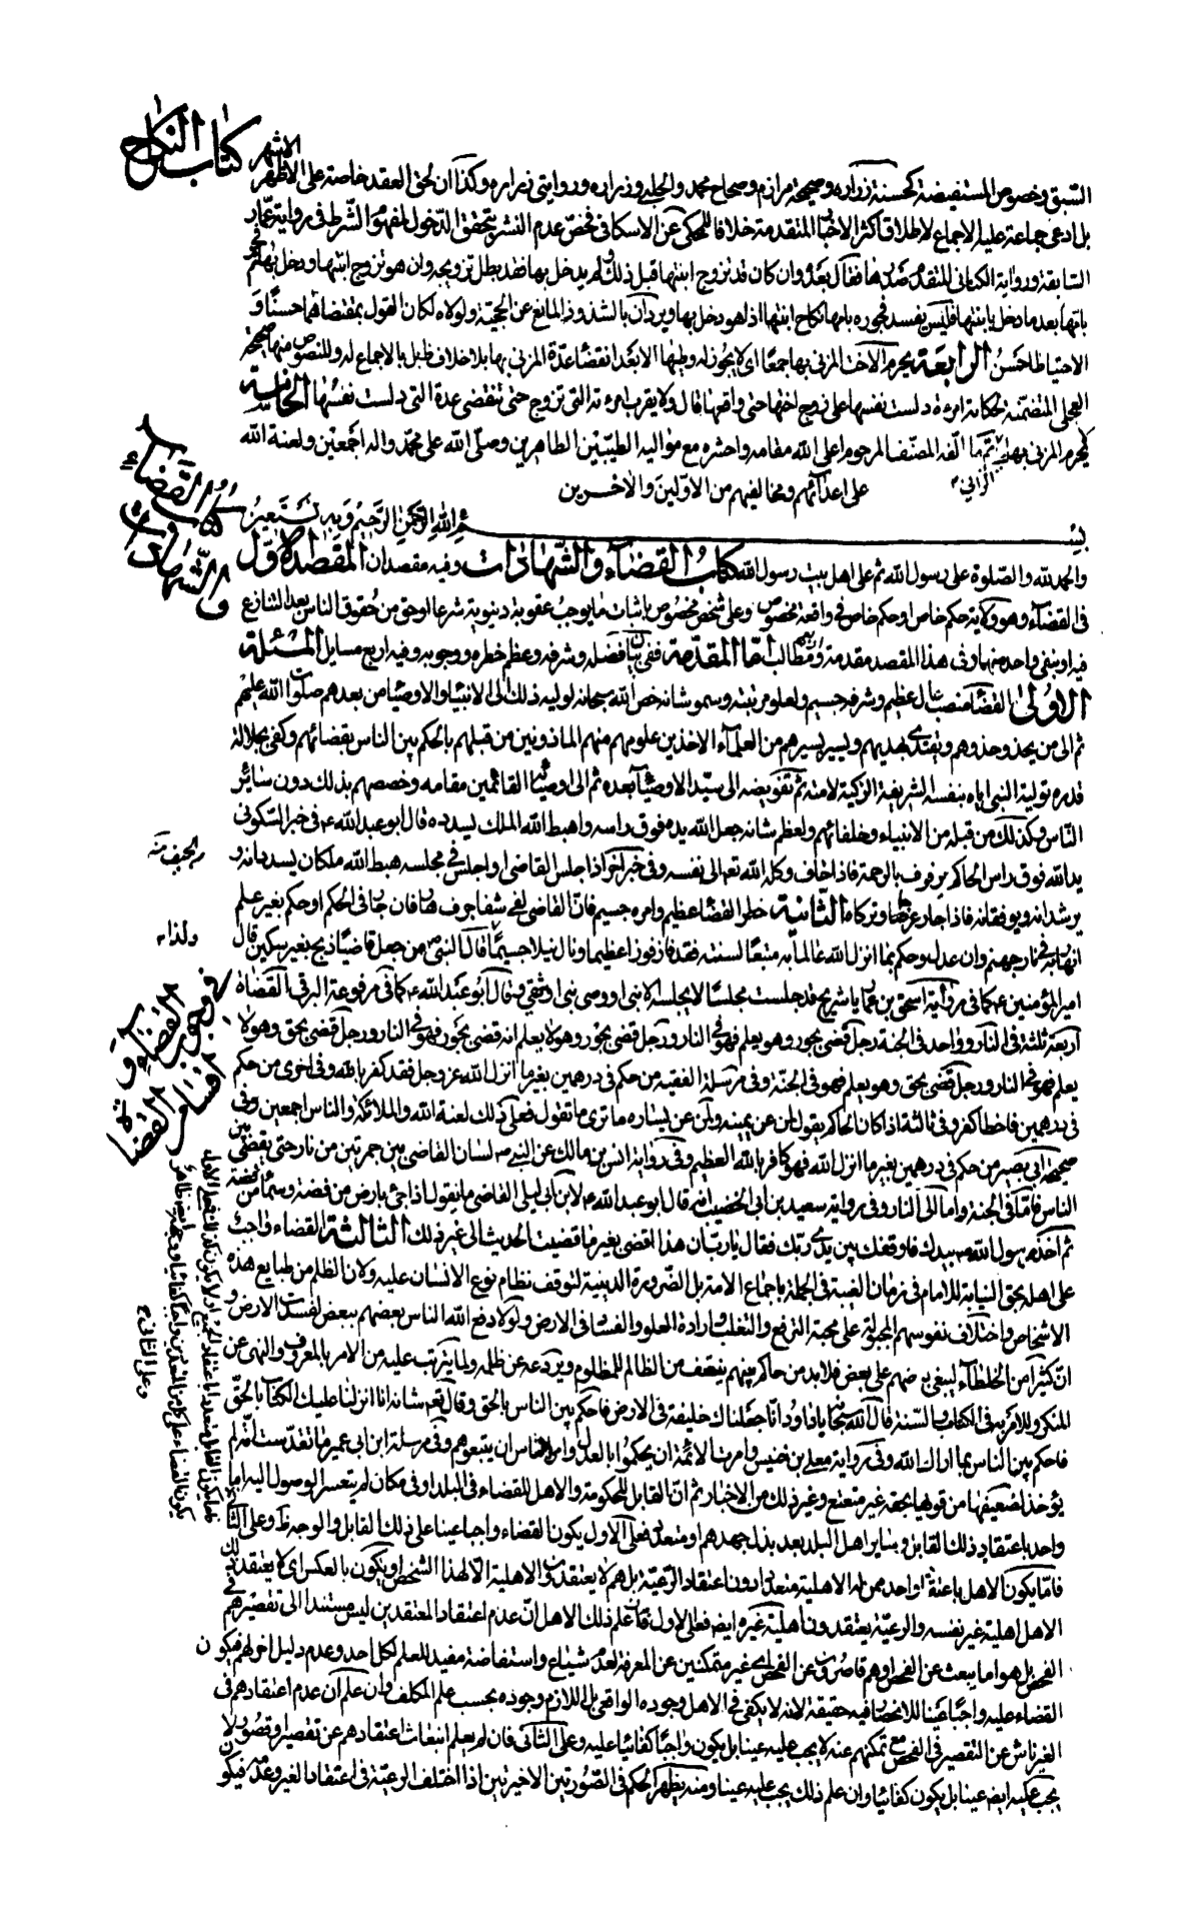 كتاب النكاح
الاشهر
السبق وخصوص المستفيضة كحسنة زرارة وصحيحة مرازم وصحاح محمد والحلبي وزرارة وروايتي زرارة وكذا ان لحق العقد خاصة على الاظهر
بل ادعى جماعة عليه الاجماع لاطلاق اكثر الاخبار المتقدمة خلافا للمحكي عن الاسكافي فخص عدم النشر بتحقق الدخول لمفهوم الشرط في رواية عمار
السابقة ورواية الكناني المتقدم صدرها فقال بعده وان كان قد تزوج ابنتها قبل ذلك ولم يدخل بها فقد بطل تزويجه وان هو تزوج ابنتها ودخل بها ثم فجر
بامها بعد ما دخل بابنتها فليس يفسد فجوره بامها نكاح ابنتها اذا هو دخل بها ويردان بالشذوذ المانع عن الحجية ولولاه لكان القول بمقتضاهما حسنا و
الاحتياط احسن الرابعة يحرم الاخت المزني بها جمعا اى لا يجوز له وطيها الا بعد انقضاء عدة المزني بها بلا خلاف ظ بل بالاجماع له وللنصوص منها صحيحة
العجلي المتضمنة لحكاية امرءة دلست نفسها على زوج اختها حتى واقعها قال ولا يقرب امرءته التي تزوج حتى تنقضى عدة التي دلست نفسها الخامسة
يحرم المزني بها على الزاني تم ما الفه المصنف المرحوم اعلى الله مقامه واحشره مع مواليه الطيبين الطاهرين وصلى الله على محمد واله اجمعين ولعنة الله
على اعدائهم ومخالفيهم من الاولين والاخرين
كتاب القضاء والشهادات
بسم الله الرحمن الرحيم وبه نستعين
والحمد لله والصلوة على رسول الله ثم على اهل بيت رسول الله كتاب القضاء والشهادات وفيه مقصدان المقصد الاول
في القضاء وهو ولاية حكم خاص او حكم خاص في واقعة مخصوص وعلى شخص مخصوص باثبات ما يوجب عقوبة دنيوية شرعا او حق من حقوق الناس بعد التنازع
فيه او بنفي واحد منهما وفي هذا المقصد مقدمة ومطالب اما المقدمة ففي بيان فضله وشرفه وعظم خطره ووجوبه وفيه اربع مسايل المسئلة
الاولى القضاء منصب عال عظيم وشرفه جسيم ولعلو مرتبته وسمو شانه خص الله سبحانه توليه ذلك الى الانبياء والاوصياء من بعدهم صلوات الله عليهم
ثم الى من يحذو حذوهم ويقتدى بهديهم ويسير بسيرهم من العلماء الاخذين علومهم منهم الماذونين من قبلهم بالحكم بين الناس بقضائهم وكفى بجلالة
قدره تولية النبي اياه بنفسه الشريفة الزكية لامته ثم تفويضه الى سيد الاوصياء بعده ثم الى اوصيائه القائمين مقامه وخصصهم بذلك دون ساير
الناس وكذلك من قبله من الانبياء وخلفائهم ولعظم شانه جعل الله يده فوق راسه واهبط الله الملك يسدده قال ابو عبد الله ع في خبر السكوني
يد الله فوق راس الحاكم يرفرف بالرحمة فاذا خاف وكله الله تعالى الى نفسه وفي خبر اخر اذا جلس القاضي او اجلس في مجلسه هبط الله ملكان يسددانه و
يرشدانه ويوفقانه فاذا جار عرجا وتركاه الثانية خطر القضاء عظيم وامره جسيم فان القاضي لفي شفا جرف هار فان جار في الحكم او حكم بغير علم
ولذا م
انهار به في نار جهنم وان عدل وحكم بما انزل الله عالما به متبعا لسنته فقد فاز فوزا عظيما ونال نيلا جسيما قال النبي ص من جعل قاضيا ذبح بغير سكين قال
امير المؤمنين ع كما في رواية اسحق بن عمار يا شريح قد جلست مجلسا لا يجلسه الا نبي او وصى نبي او شقي وقال ابو عبد الله ع كما في مرفوعة البرقي القضاة
اربعة ثلثة في النار وواحد في الجنة رجل قضى بجور وهو يعلم فهو في النار ورجل قضى بجور وهو لا يعلم انه قضى بجور فهو في النار ورجل قضى بحق وهو لا
في وجوب القضاء واقسام القضاة
يعلم فهو في النار ورجل قضى بحق وهو يعلم فهو في الجنة وفي مرسلة الفقيه من حكم في درهمين بغير ما انزل الله عز وجل فقد كفر بالله وفي اخرى من حكم
في درهمين فاخطا كفر وفي ثالثة اذا كان الحاكم يقول لمن عن يمينه ولمن عن يساره ما ترى ما تقول فعلى ذلك لعنة الله والملائكة والناس اجمعين وفي
صحيحة ابي بصير من حكم في درهمين بغير ما انزل الله فهو كافر بالله العظيم وفي رواية انس بن مالك عن النبي ص لسان القاضي بين جمرتين من نار حتى يقضى بين
الناس فاما في الجنة واما الى النار وفي رواية سعيد بن ابي الخضيب انه قال ابو عبد الله ع لابن ابي ليلى القاضي ما تقول اذا جئ بارض من فضة وسماء من فضة
ثم اخذ رسول الله ص بيدك فاوقفك بين يدى ربك فقال يا رب ان هذا قضى بغير ما قضيت الحديث الى غير ذلك الثالثة القضاء واجب
على اهله بحق النيابة للامام في زمان الغيبة في الجملة باجماع الامة بل الضرورة الدينية لتوقف نظام نوع الانسان عليه ولان الظلم من طبايع هذه
الاشخاص واختلاف نفوسهم المجبولة على محبة الترفع والتغلب وارادة العلو والفساد في الارض ولولا دفع الله الناس بعضهم ببعض لفسدت الارض و
ان كثيرا من الخلطاء ليبغى بعضهم على بعض فلا بد من حاكم بينهم ينتصف من الظالم للمظلوم ويردعه عن ظلمه ولما يترتب عليه من الامر بالمعروف والنهى عن
المنكر وللامر به في الكتاب والسنة قال الله سبحانه يا داود انا جعلناك خليفة في الارض فاحكم بين الناس بالحق وقال تعم شانه انا انزلنا عليك الكتاب بالحق
فاحكم بين الناس بما اراك الله وفي رواية معلى بن خنيس وامرت الائمة ان يحكموا بالعدل وامر الناس ان يتبعوهم وفي مرسلة ابن ابي عمير ما تقدست امة لم
يؤخذ لضعيفها من قويها بحقه غير متعتع وغير ذلك من الاخبار ثم ان القابل للحكومة والاهل للقضاء في البلد او في مكان لم يتعسر الوصول اليه اما
واحد باعتقاد ذلك القابل وساير اهل البلد بعد بذل جهدهم او متعدد فعلى الاول يكون القضاء واجبا عينا على ذلك القابل والوجه ظ وعلى الثاني
فاما يكون الاهل باعتقاد واحد ممن له الاهلية متعددا دون اعتقاد الرعية بل هم لا يعتقدون الاهلية الا لهذا الشخص او يكون بالعكس اى لا يعتقد ذلك
الاهل اهلية غير نفسه والرعية يعتقدون اهلية غيره ايضا فعلى الاول فان علم ذلك الاهل ان عدم اعتقاد المعتقدين ليس مستندا الى تقصيرهم في
الفحص بل هو اما بعث عن الفحص او هم قاصرون عن الفحص اى غير متمكنين عن المعرفة لعدم شياع واستفاضة مفيد للعلم لكل احد وعدم دليل اخر لهم فيكون
القضاء عليه واجبا عينا للانحصار فيه حقيقة لانه لا يكفى في الاهل وجوده الواقعى بل اللازم وجوده بحسب علم المكلف وان علم ان عدم اعتقادهم في
الغير ناش عن التقصير في الفحص مع تمكنهم عنه لا يجب عليه عينا بل يكون واجبا كفائيا عليه وعلى الثاني فان لم يعلم انبعاث اعتقادهم عن تقصير او قصور لا
يجب عليه ايضا عينا بل يكون كفائيا وان علم ذلك يجب عليه عينا ومنه يظهر الحكم في الصورتين الاخيرتين اذا اختلف الرعية في اعتقاد الغير وعدمه فيكون